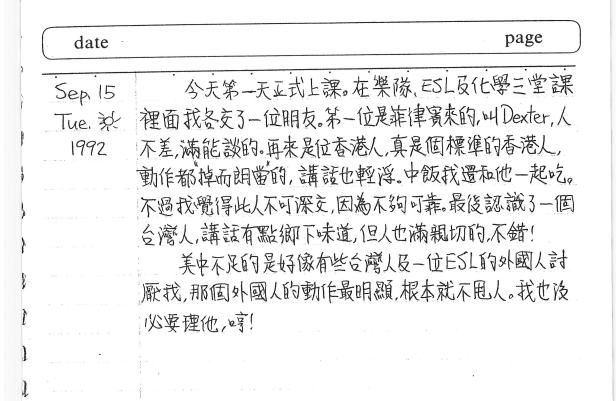 date page
Sep. 15
Tue. ☼
1992
今天第一天正式上課。在樂隊、ESL及化學三堂課
裡面我各交了一位朋友。第一位是菲律賓來的,叫Dexter,人
不差,滿能談的。再來是位香港人,真是個標準的香港人,
動作都掉而朗當的,講話也輕浮。中飯我還和他一起吃。
不過我覺得此人不可深交,因為不夠可靠。最後認識了一個
台灣人,講話有點鄉下味道,但人也滿親切的,不錯!
美中不足的是好像有些台灣人及一位ESL的外國人討
厭我,那個外國人的動作最明顯,根本就不甩人。我也沒
必要理他,哼!